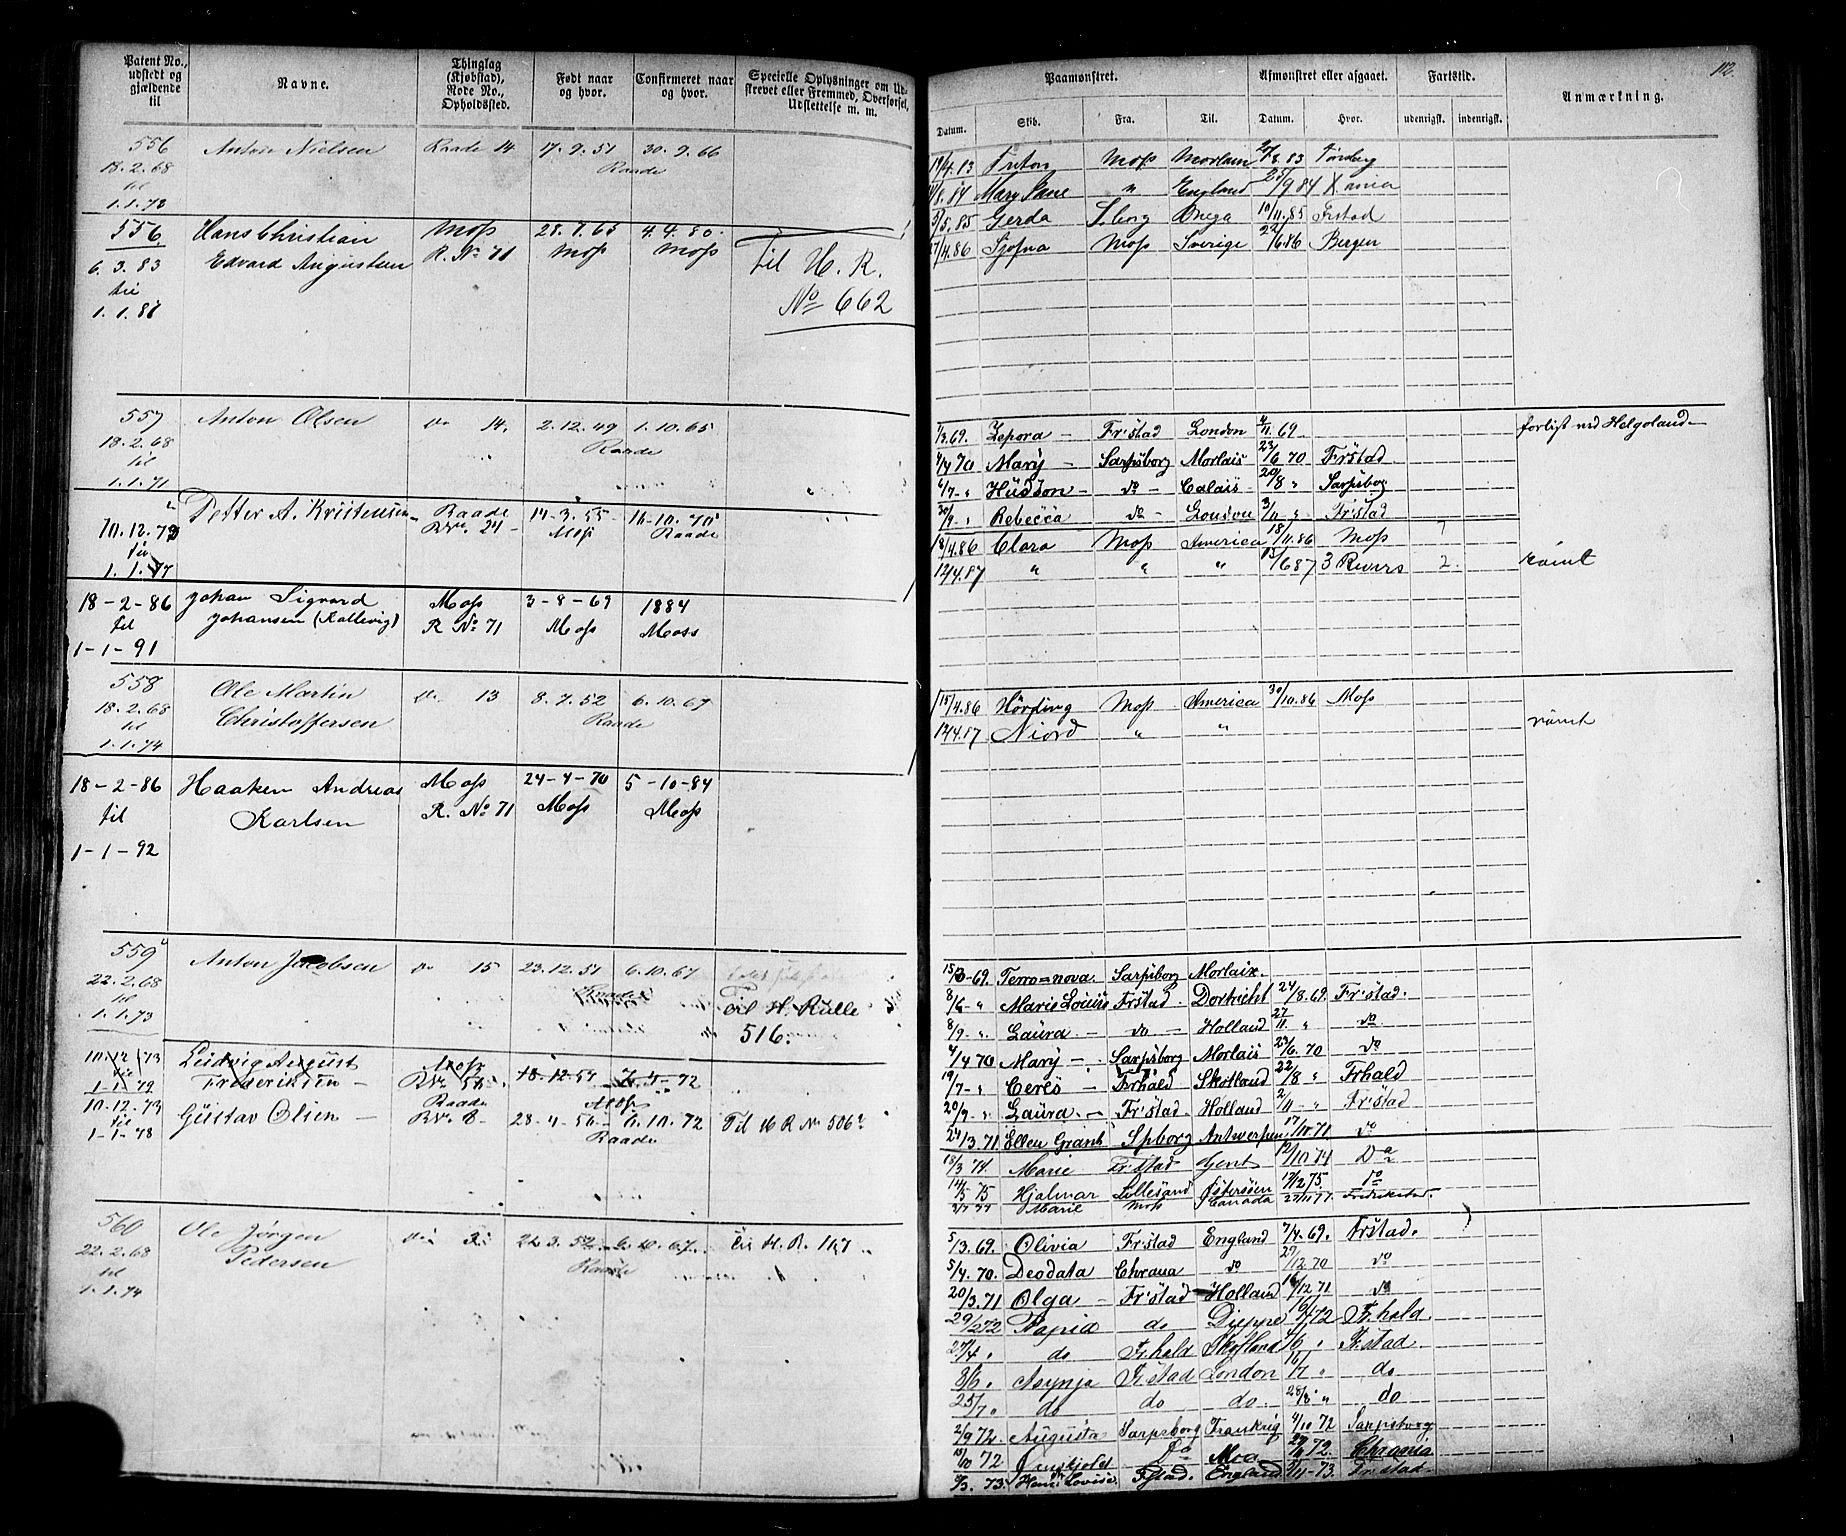 Patent No., udstedt og gjældende til
Navne.
Thinglag (Kjøbstad), Rode No., Opholdssted.
Født naar og hvor.
Confirmeret naar og hvor.
Specielle Oplysninger om Udskrevet eller Fremmed, Overførsel, Udslettelse m. m.
556 Anton Nielsen Raade 14 17.9.51 30.9.66
18.2.68 Raade
til
1.1.73
556 Hans Christian Moss 28.7.65 4.4.80. til H. R.
6.3.83 Edvard Augustsen R. No 71 Moss Moss No 662
til
1.1.86
557 Anton Olsen do 14, 2.12.49 1.10.65
18.2.68 Raade
til
1.1.71
Petter A. Kristensen Raade 14-3.55 Raade
10.12.73 24 Moss
til
1.1.77
18-2-86 Johan Sigvard Moss 3-8-69 1884
til Johansen (Kallevig) R No 71 Moss Moss
1-1-91
558 Ole Martin do 13 8.7.52 6.10.67
18.2.68 Christoffersen Raade
til
1.1.74
18-2-86 Haaken Andreas Moss 24-4-70 5-10-84
til Karlsen R. No 71 Moss Moss
1-1-92
559 Anton Jacobsen do 15 23.12.51 6.10.67
22.2.68 Raade til H. Rulle
til 516.
1.1.73
10.12.73 Ludvig August Moss 18-12-57 72
til Frederiksen
1-1-79 Moss
10.12.73 Gustav Olsen Raade 28-4-56 6.10.72 Til H R No 506
til Raade
1-1-78
560 Ole Jørgen do 22.3.52 6.10.67 til H. R. 1167
22.2.68 Pedersen Raade
til
1.1.74
112.
Paamønstret.
Afmønstret eller afgaaet.
Fartstid.
Anmærkning.
Datum. Skib. Fra. Til. Datum. Hvor. udenrigsk. indenrigsk.
Triton Moss Morlaix Tønsberg
8.84 Mary Jane " England 25/9 84 Xania
5.85 Gerda 10/11.85 Frstad
4.86 Sjofna Moss Sverige 22/6.86 Bergen
1/3.69. Zepora - Fr:stad London 69 forlist ved Helgoland-
4/4 70 Mary - Sarpsborg Morlais 23/6 70 Frstad
Hudson - do - Calais 20/8 " Sarpsborg
30/9 " Rebecca do - London 3/11 " Fr:stad
18/4.86 Clara Moss America 18/11.86 Moss 7
12/4.87 " " " 15/6 87 3 Rivers 2. rømt
15/4.86 Hørding Moss America 30/10.86 Moss
12/4.87 Niord " " rømt
15/3-69. Terro=nova. Sarpsborg Morlaix.
8/6 - " Marie Louise Frstad Dortrecht 24/8.69. Fr:stad.
8/9 - " Laura - do - Holland 27/11 " do
4/4 70 Mary - Sarpsborg Morlais 23/6.70 do
19/7 - " Ceres - Frhald Skotland 22/8 " Frhald
20/9 - " Laura. - Fr:stad Holland 2/11 - " Fr:stad
24/3.71. Ellen Grant Spborg Antwerpen 17/10.71 do
18/3 74. Marie Fr:stad Gent 12/10 74 Do
14/5 75 Hjalmar Lillesand Østersøen 75. do
Marie Moss Canada 77. Fredrikstad.
5/3.69. Olivia Frstad England 7/4.69. Frstad.
5/4.70. Deodata Chrania do 27/12.70 do
20/3.71 Olga - Fr:stad Holland 16/12.71 do
29/2 72 do Dieppe 72 Fr.hald.
27/4 " do Fr.hald Skotland " Fr.stad
3/6 " Asynja Frstad London 16/7 " do
25/7 " do do do. 28/8 " do
2/9 72. Augusta Sarpsborg Frankrig 4/10 72 Sarpsborg
15/10 72. Ørnskjold Do 72. Chrania
73. Lovise Frstad. England 73. Frstad.